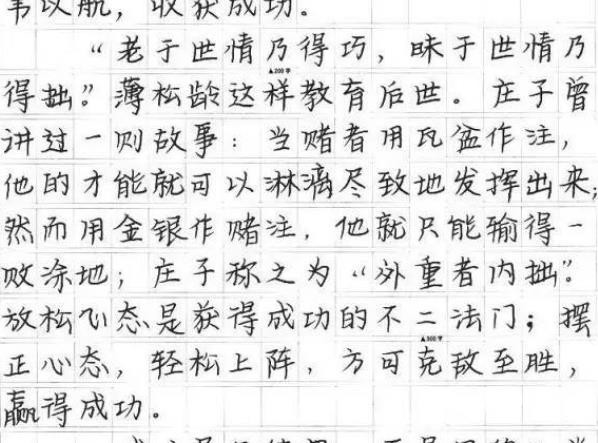 苇以航，收获成功。
“老于世情乃得巧，昧于世情乃
▲200字
得拙。”薄松龄这样教育后世。庄子曾
讲过一则故事：当赌者用瓦盆作注，
他的才能就可以淋漓尽致地发挥出来；
然而用金银作赌注，他就只能输得一
败涂地；庄子称之为“外重者内拙”。
放松心态是获得成功的不二法门；摆
▲300字
正心态，轻松上阵，方可克敌至胜，
赢得成功。